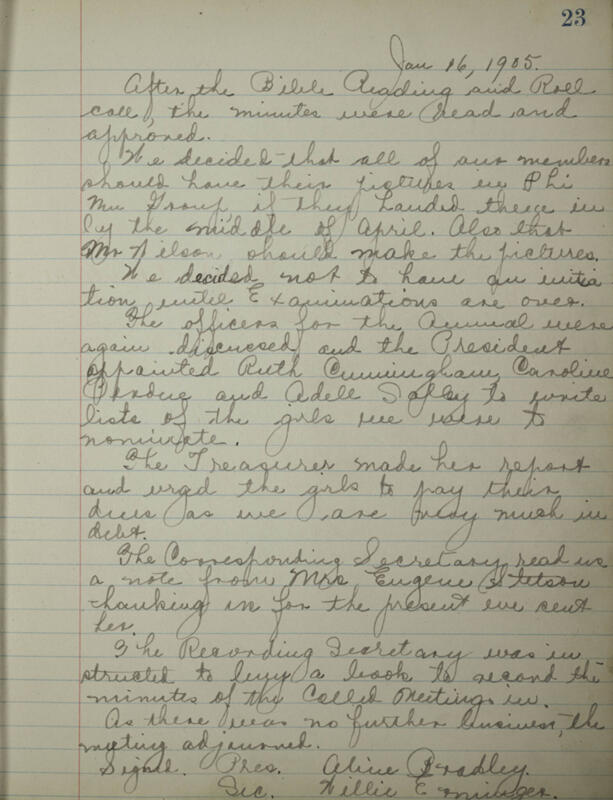 23
Jan 16, 1905.
After the Bible Reading and Roll
call, the minutes were read and
approved.
We decided that all of our members
should have their pictures in Phi
Mu Group if they handed them in
by the middle of April. Also that
Mr Wilson should make the pictures.
We decided not to have an initia
tion until Examinations are over.
The officers for the Annual were
again discussed and the President
appointed Ruth Cunningham, Caroline
Perdue and Adell Salley to write
lists of the girls we were to
nominate.
The Treasurer made her report
and urgd the girls to pay their
dues as we are very much in
debt.
The Corresponding Secretary read us
a note from Mrs Eugene Stetson
thanking us for the present we sent
her.
The Recording Secretary was in
structed to buy a book to record the
minutes of the Called Meetings in.
As there was no further business, the
meeting adjourned.
Signed. Pres. Aline Bradley.
Sec. Willie Erminger.